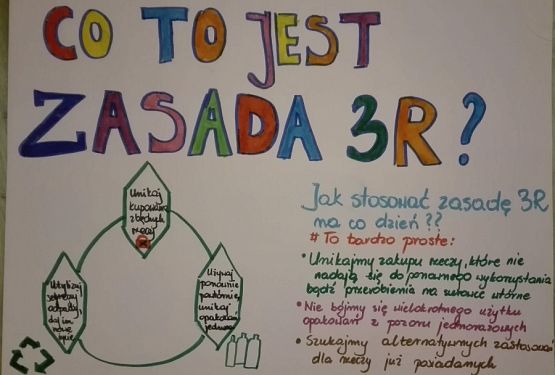 CO TO JEST
ZASADA 3R?
Unikaj
kupowania
zbędnych
rzeczy
Używaj
ponownie
unikaj
opakowań
Jak stosować zasadę 3R
na co dzień??
# To bardzo proste:
• Unikajmy zakupu rzeczy, które nie
nadają się do ponownego wykorzystania
bądź przerobienia na surowce wtórne
• Nie bójmy się wielokrotnego użytku
opakowań z pozoru jednorazowych
• Szukajmy alternatywnych zastosowań
dla rzeczy już posiadanych